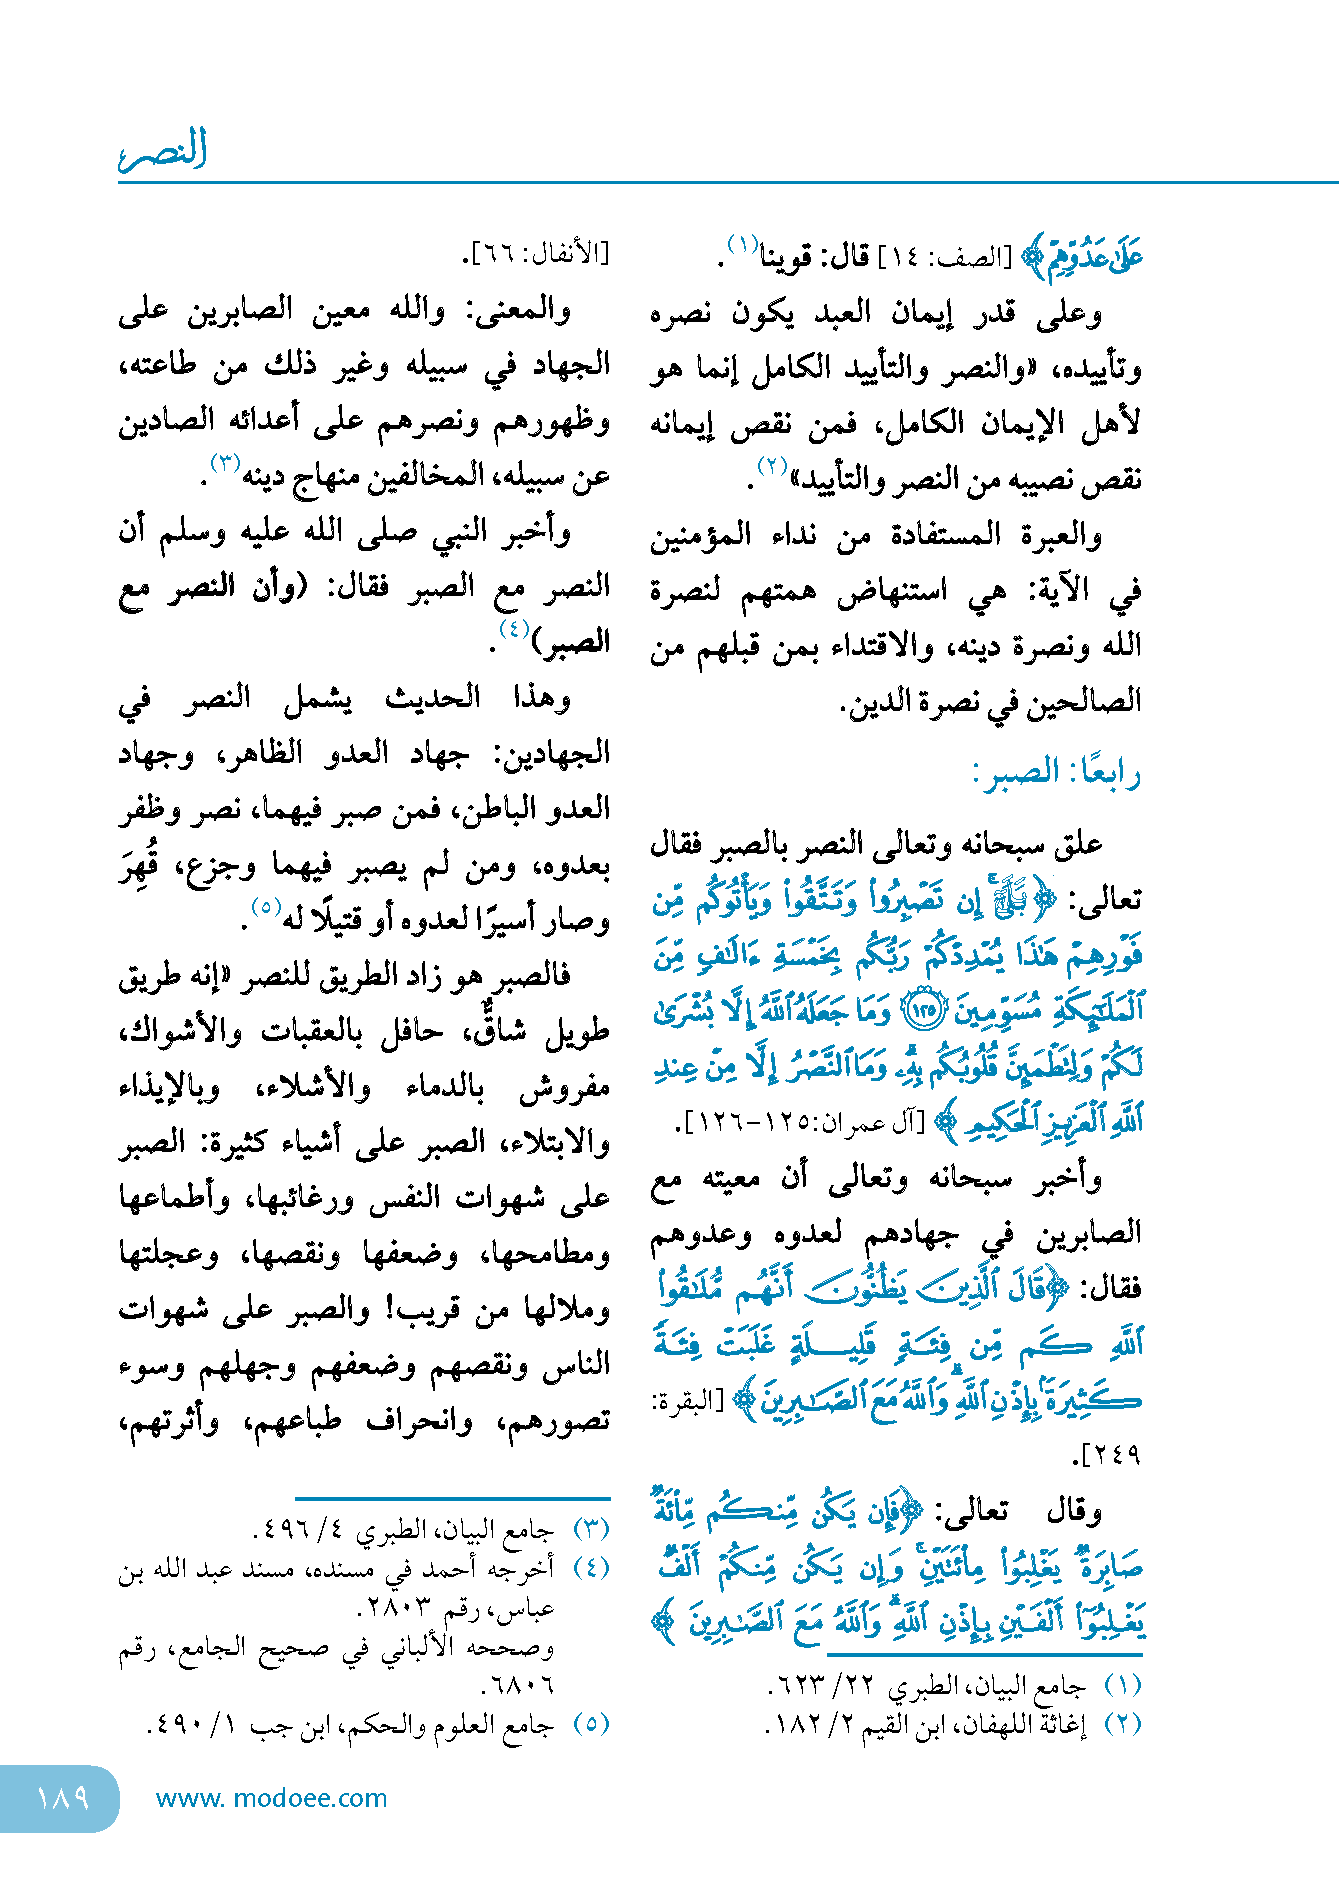 النصر
عَلَىٰ عَدُوِّهِمْ﴾ [الصف: ١٤] قال: قوينا(١).
وعلى قدر إيمان العبد يكون نصره
وتأييده، «والنصر والتأييد الكامل إنما هو
لأهل الإيمان الكامل، فمن نقص إيمانه
نقص نصيبه من النصر والتأييد»(٢).
والعبرة المستفادة من نداء المؤمنين
في الآية: هي استنهاض همتهم لنصرة
الله ونصرة دينه، والاقتداء بمن قبلهم من
الصالحين في نصرة الدين.
رابعًا: الصبر:
علق سبحانه وتعالى النصر بالصبر فقال
تعالى: ﴿بَلَىٰٓ ۚ إِن تَصْبِرُوا۟ وَتَتَّقُوا۟ وَيَأْتُوكُم مِّن
فَوْرِهِمْ هَٰذَا يُمْدِدْكُمْ رَبُّكُم بِخَمْسَةِ ءَالَٰفٍ مِّنَ
ٱلْمَلَٰٓئِكَةِ مُسَوِّمِينَ ۝١٢٥ وَمَا جَعَلَهُ ٱللَّهُ إِلَّا بُشْرَىٰ
لَكُمْ وَلِتَطْمَئِنَّ قُلُوبُكُم بِهِۦ ۗ وَمَا ٱلنَّصْرُ إِلَّا مِنْ عِندِ
ٱللَّهِ ٱلْعَزِيزِ ٱلْحَكِيمِ﴾ [آل عمران:١٢٥-١٢٦].
وأخبر سبحانه وتعالى أن معيته مع
الصابرين في جهادهم لعدوه وعدوهم
فقال: ﴿قَالَ ٱلَّذِينَ يَظُنُّونَ أَنَّهُم مُّلَٰقُوا۟
ٱللَّهِ كَم مِّن فِئَةٍ قَلِيلَةٍ غَلَبَتْ فِئَةً
كَثِيرَةًۢ بِإِذْنِ ٱللَّهِ ۗ وَٱللَّهُ مَعَ ٱلصَّٰبِرِينَ﴾ [البقرة:
٢٤٩].
وقال تعالى: ﴿فَإِن يَكُن مِّنكُم مِّا۟ئَةٌ
صَابِرَةٌ يَغْلِبُوا۟ مِا۟ئَتَيْنِ ۚ وَإِن يَكُن مِّنكُمْ أَلْفٌ
يَغْلِبُوٓا۟ أَلْفَيْنِ بِإِذْنِ ٱللَّهِ ۗ وَٱللَّهُ مَعَ ٱلصَّٰبِرِينَ﴾
(١) جامع البيان، الطبري ٢٢/ ٦٢٣.
(٢) إغاثة اللهفان، ابن القيم ٢/ ١٨٢.
[الأنفال: ٦٦].
والمعنى: والله معين الصابرين على
الجهاد في سبيله وغير ذلك من طاعته،
وظهورهم ونصرهم على أعدائه الصادين
عن سبيله، المخالفين منهاج دينه(٣).
وأخبر النبي صلى الله عليه وسلم أن
النصر مع الصبر فقال: (وأن النصر مع
الصبر)(٤).
وهذا الحديث يشمل النصر في
الجهادين: جهاد العدو الظاهر، وجهاد
العدو الباطن، فمن صبر فيهما، نصر وظفر
بعدوه، ومن لم يصبر فيهما وجزع، قُهِرَ
وصار أسيرًا لعدوه أو قتيلًا له(٥).
فالصبر هو زاد الطريق للنصر «إنه طريق
طويل شاقٌّ، حافل بالعقبات والأشواك،
مفروش بالدماء والأشلاء، وبالإيذاء
والابتلاء، الصبر على أشياء كثيرة: الصبر
على شهوات النفس ورغائبها، وأطماعها
ومطامحها، وضعفها ونقصها، وعجلتها
وملالها من قريب! والصبر على شهوات
الناس ونقصهم وضعفهم وجهلهم وسوء
تصورهم، وانحراف طباعهم، وأثرتهم،
(٣) جامع البيان، الطبري ٤/ ٤٩٦.
(٤) أخرجه أحمد في مسنده، مسند عبد الله بن
عباس، رقم ٢٨٠٣.
وصححه الألباني في صحيح الجامع، رقم
٦٨٠٦.
(٥) جامع العلوم والحكم، ابن رجب ١/ ٤٩٠.
١٨٩
www. modoee.com